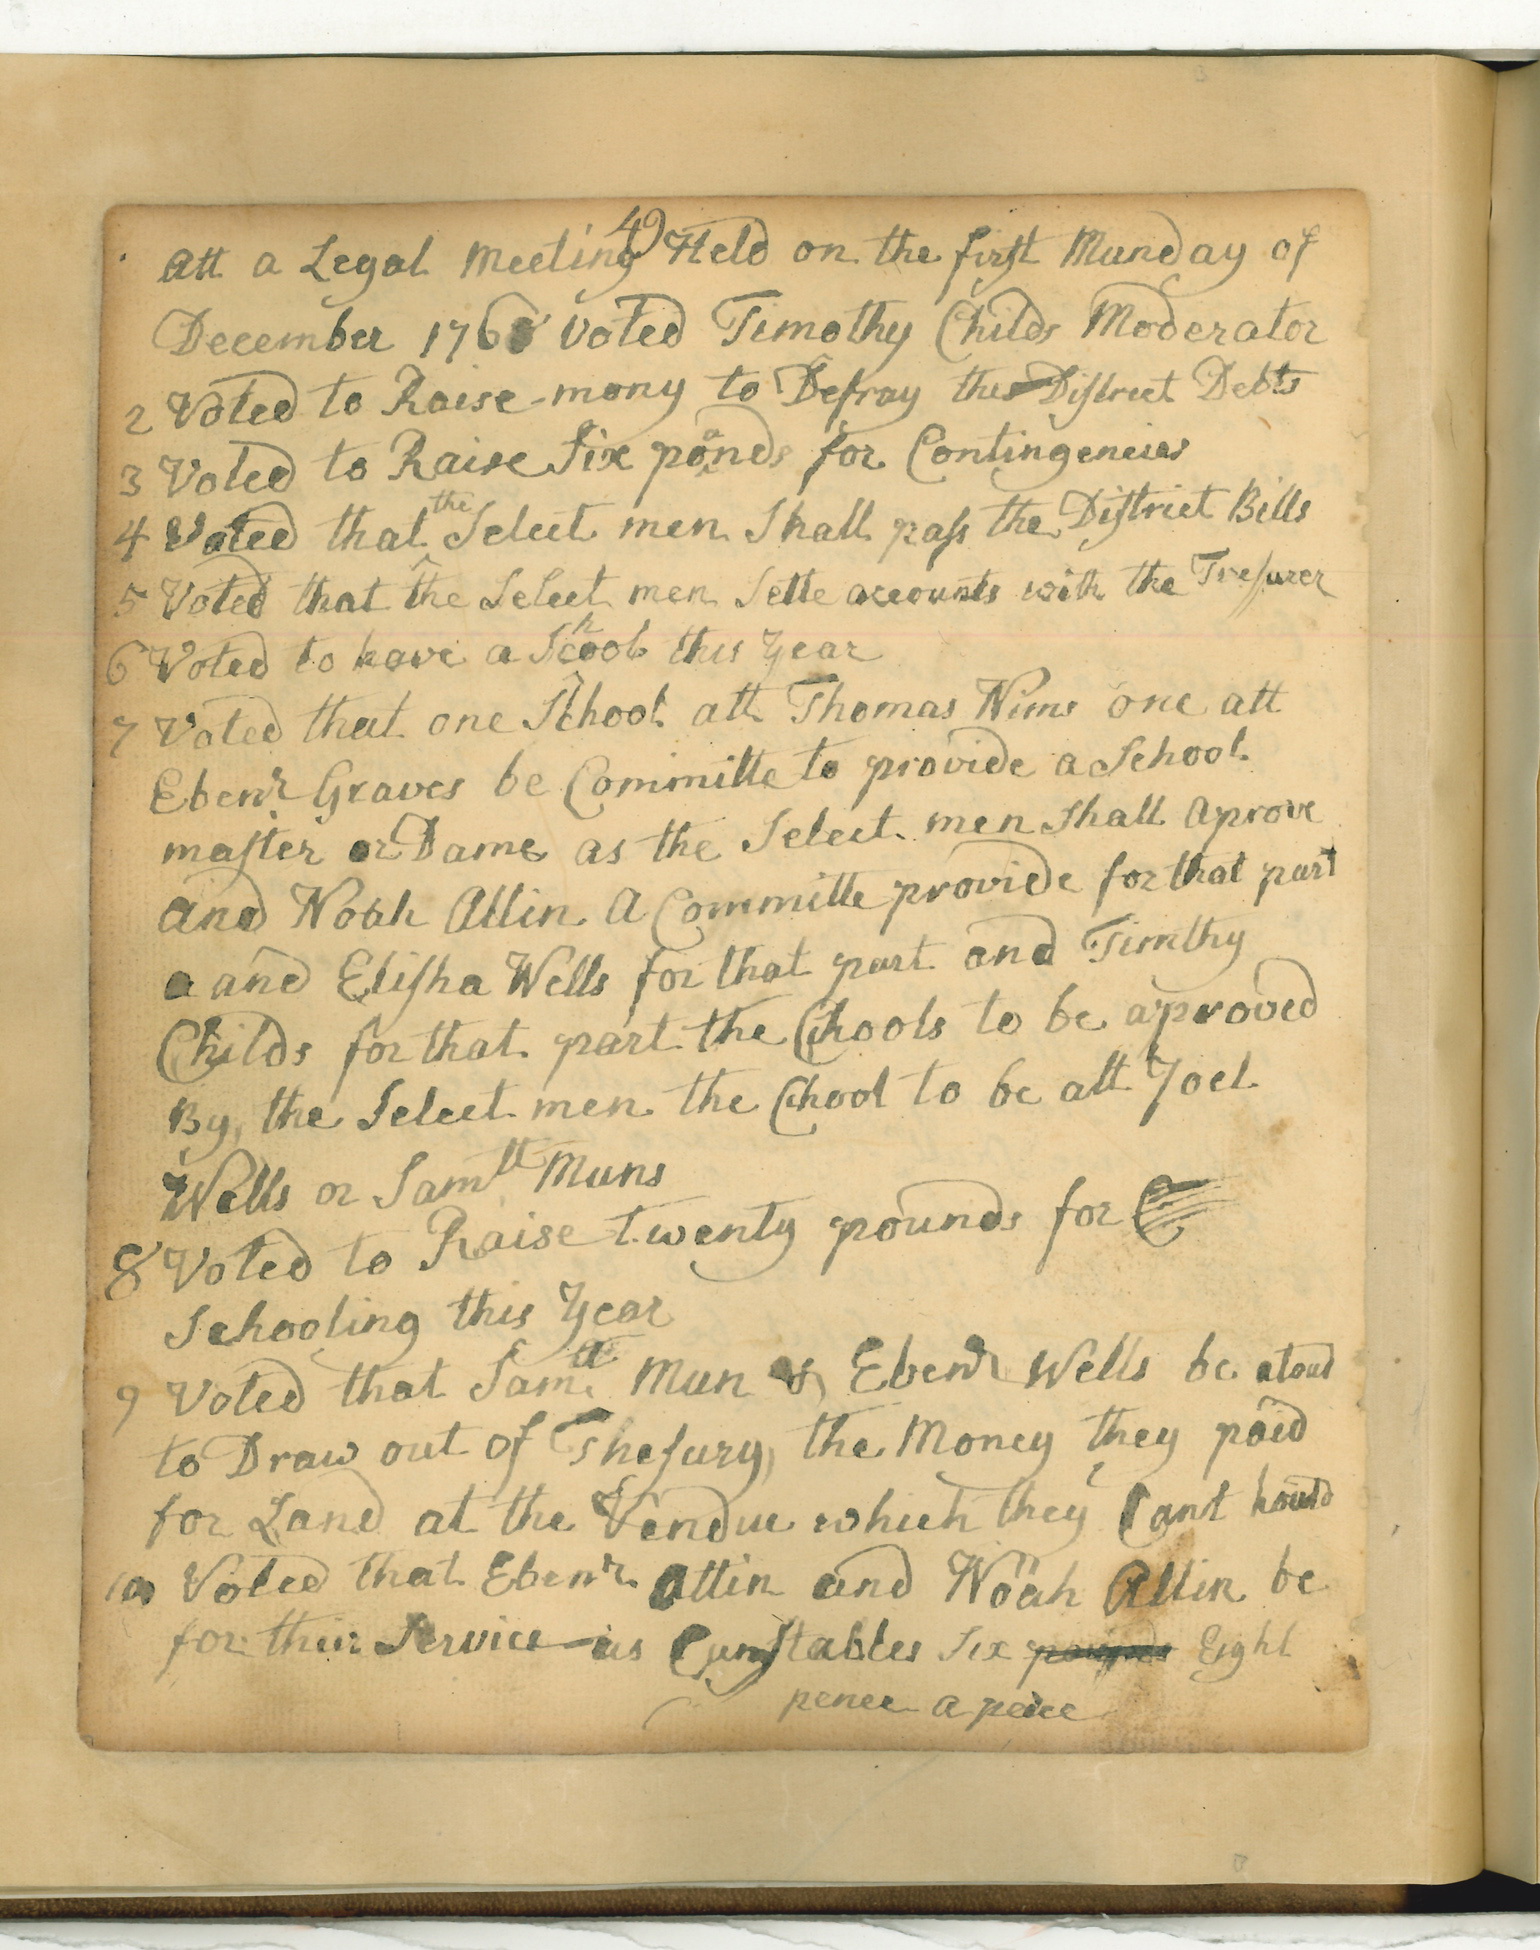 49
att a Legal Meeting Held on the first Munday of
December 1768 Voted Timothy Childs Moderator
2 Voted to Raise mony to Defray the District Debts
3 Voted to Raise Six pounds for Contingencies
4 Voted that the Select men Shall pass the District Bills
5 Voted that the Select men Sette accounts with the Tresurer
6 Voted to have a School this Year
7 Voted that one School att Thomas Nims one att
Ebenr Graves be Committe to provide a School
master or Dame as the Select men Shall Aprove
and Noah Allin A Committe provide for that part
a and Elisha Wells for that part and Timthy
Childs for that part the Chools to be aproved
By the Select men the Chool to be att Joel
Wells or Samll Muns
8 Voted to Raise twenty pounds for
Schooling this Year
9 Voted that Samll Mun & Ebenr Wells be aloud
to Draw out of Thesury the Money they paid
for Land at the Vendue which they Cant hould
10 Voted that Ebenr Allin and Noah Allin be
for their Service as Cunstables Six pounds Eight
pence a peice